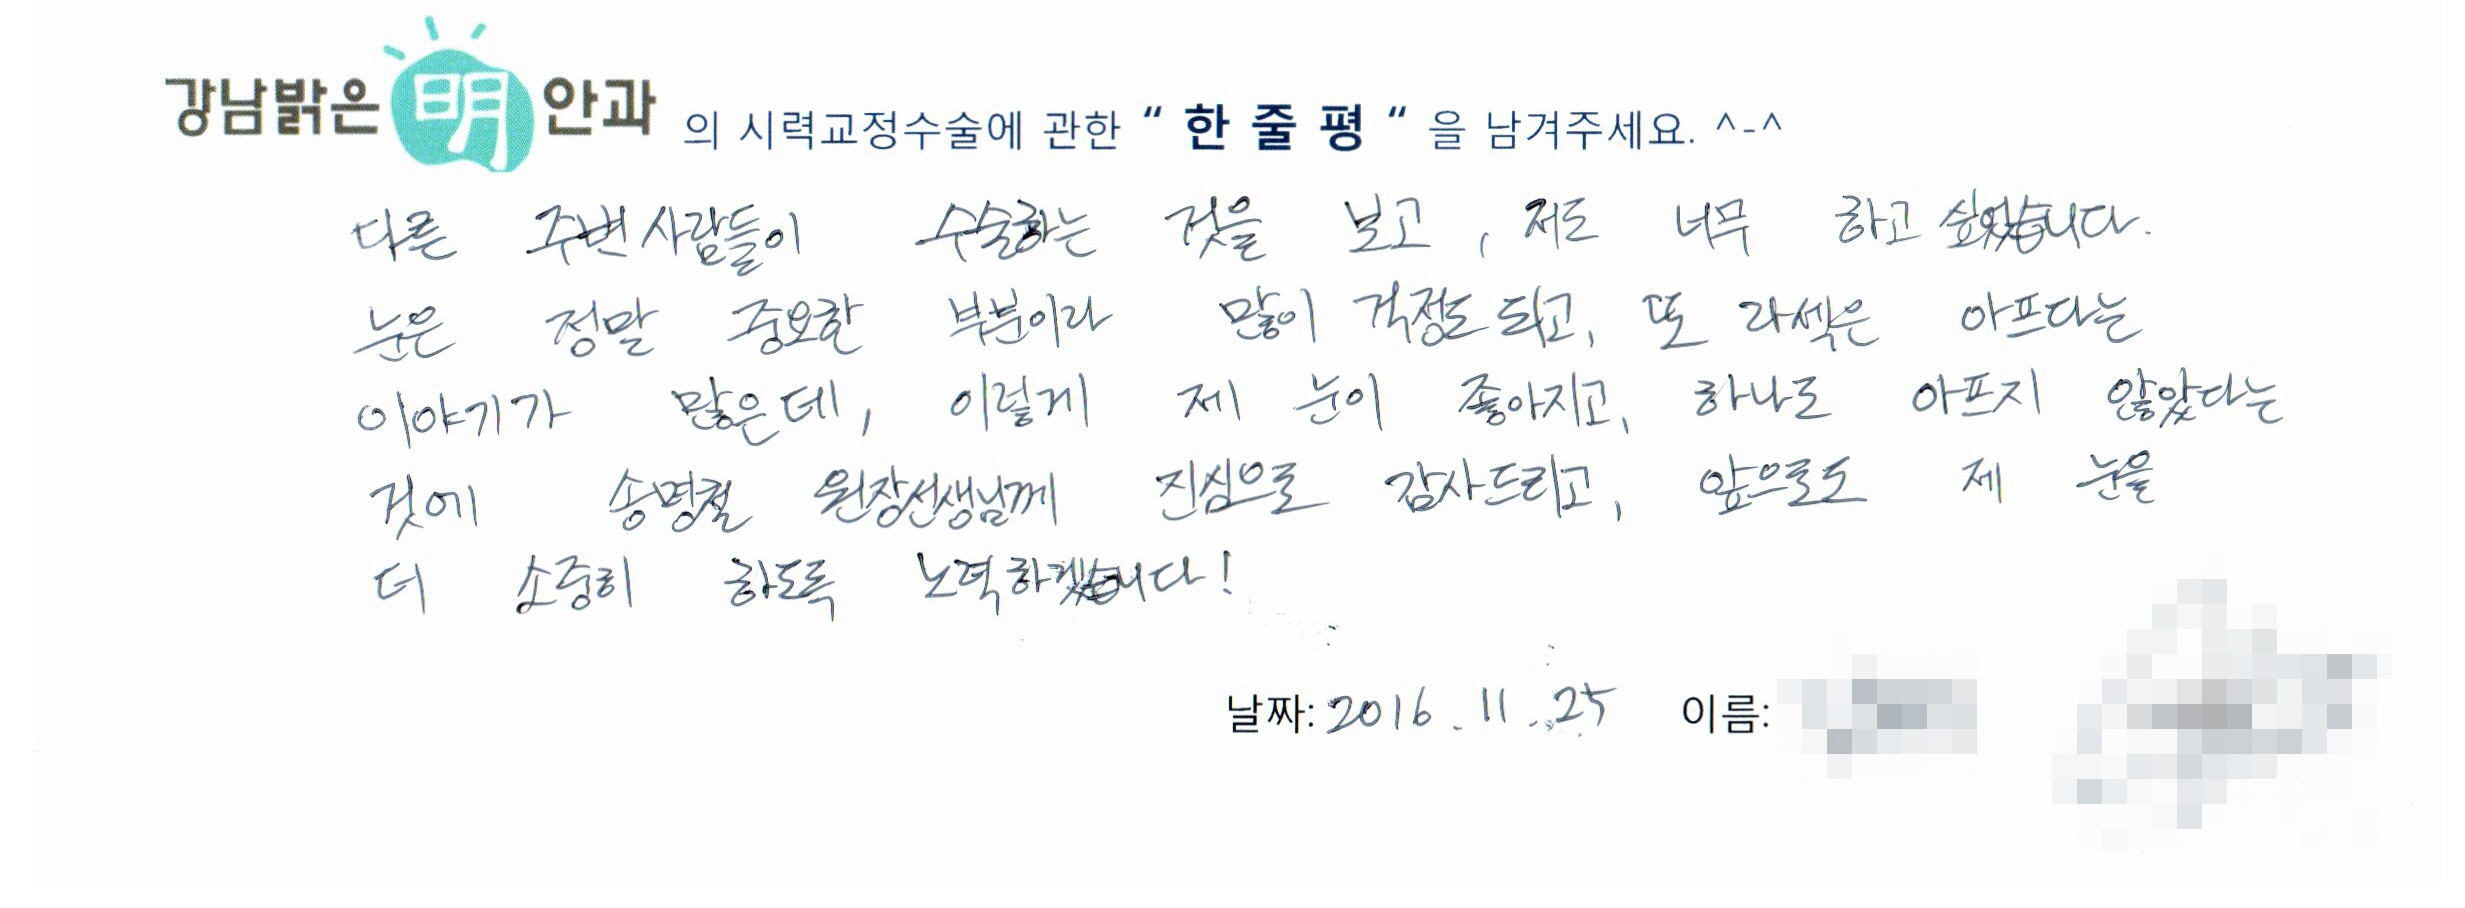 강남밝은 明 안과 의 시력교정수술에 관한 “ 한 줄 평 “ 을 남겨주세요. ^-^
다른 주변사람들이 수술하는 것을 보고, 저도 너무 하고 싶었습니다.
눈은 정말 중요한 부분이라 많이 걱정도 되고, 또 라섹은 아프다는
이야기가 많은데, 이렇게 제 눈이 좋아지고, 하나도 아프지 않았다는
것에 송명철 원장선생님께 진심으로 감사드리고, 앞으로도 제 눈을
더 소중히 하도록 노력하겠습니다!
날짜: 2016. 11. 25 이름: